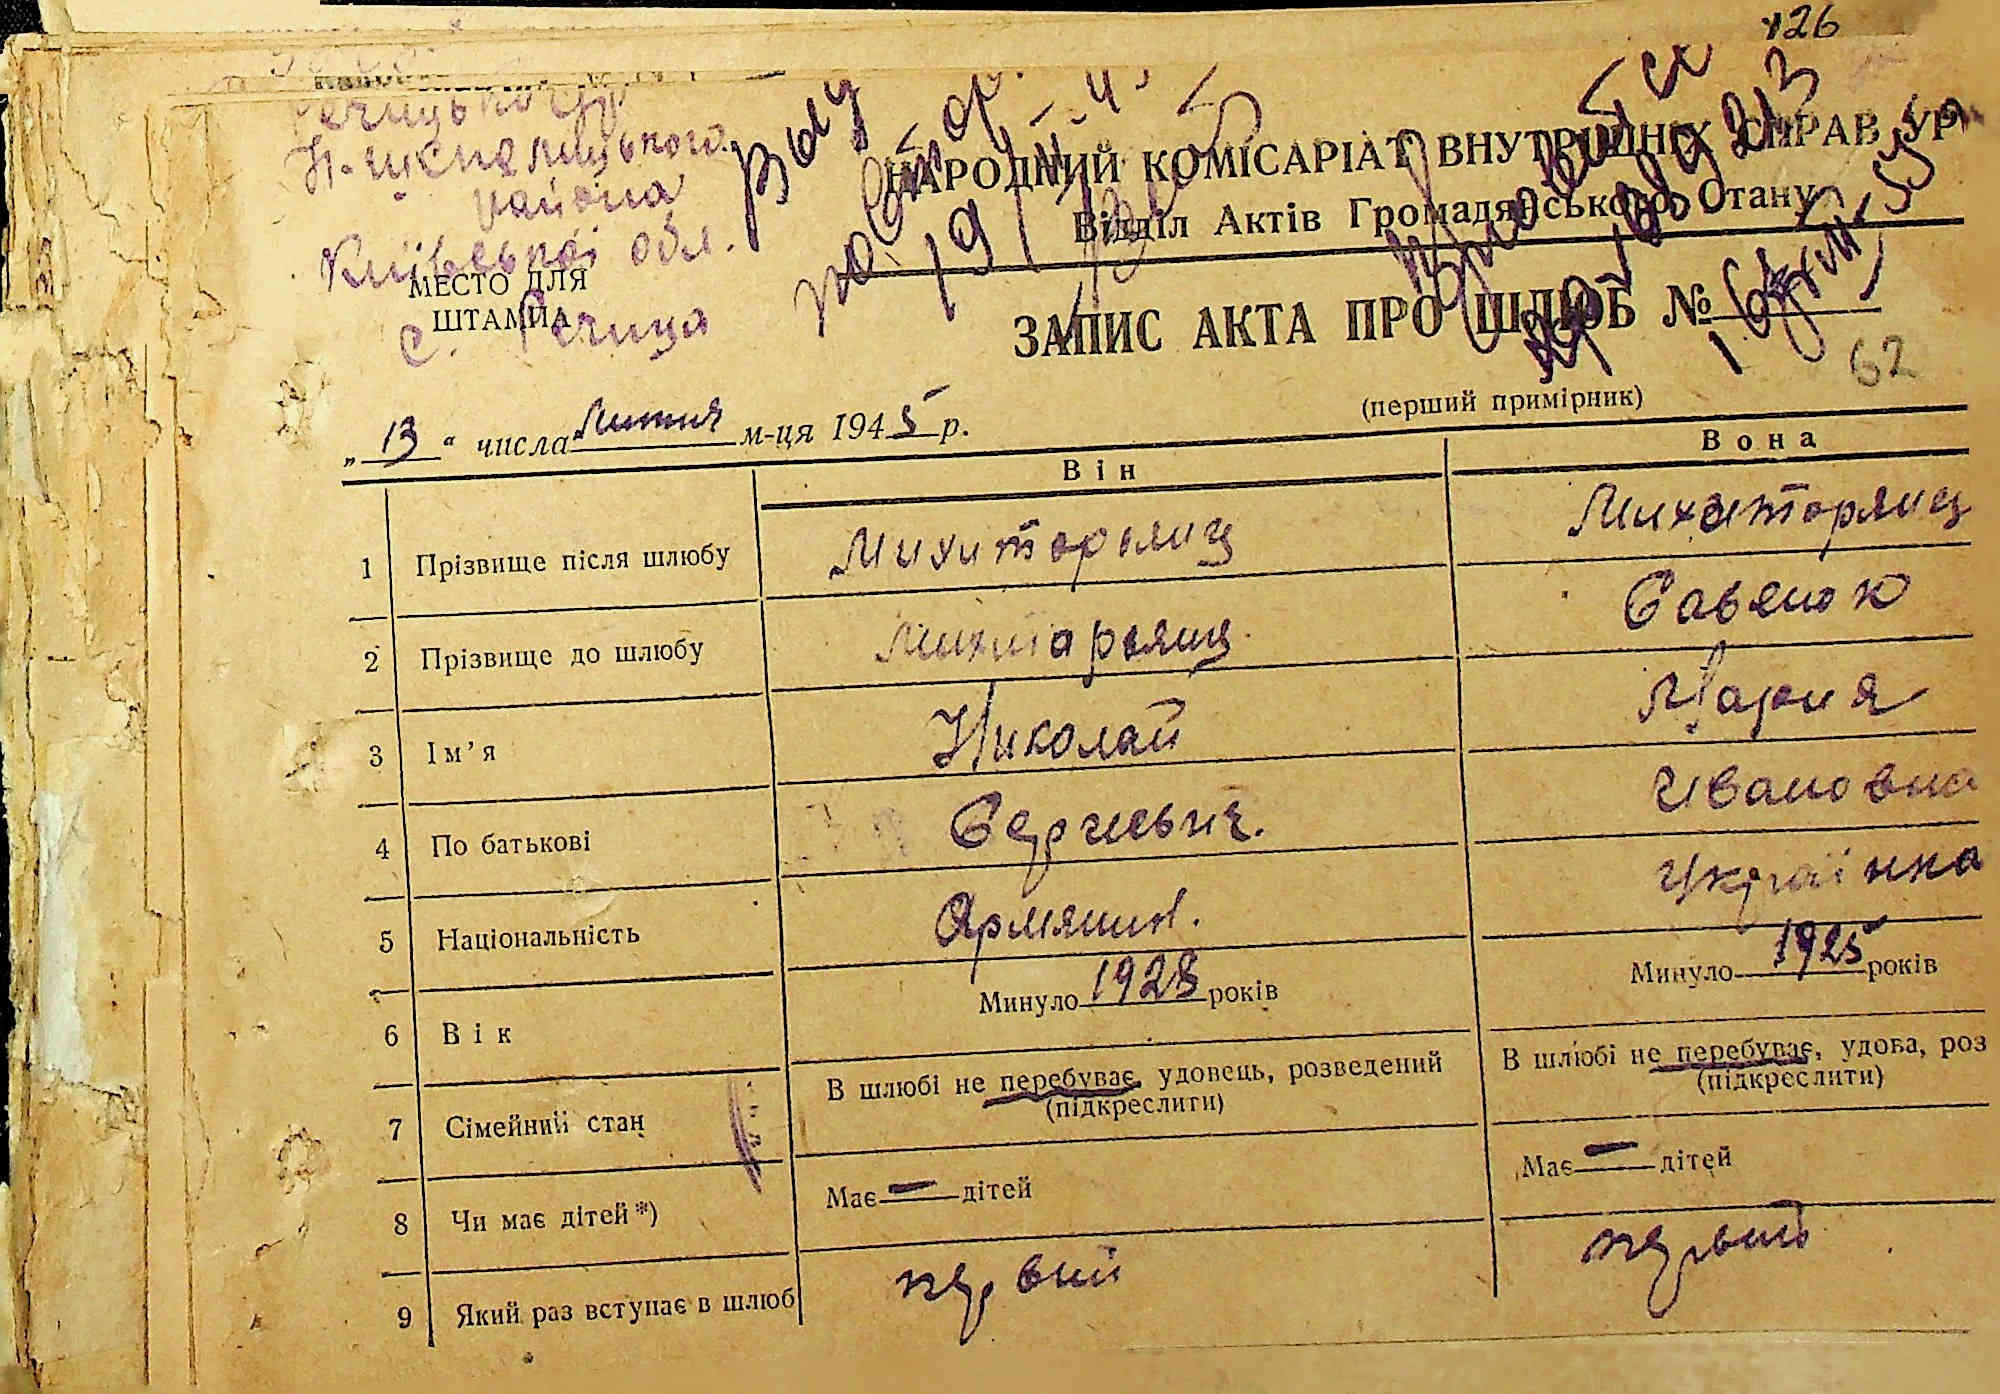 126
Н-Шепелицького
района
Київської обл.
МЕСТО ДЛЯ
ШТАМПА
с. Речица
НАРОДНИЙ КОМІСАРІАТ ВНУТРІШНІХ СПРАВ УР
Відділ Актів Громадянського Стану
ЗАПИС АКТА ПРО ШЛЮБ №
62
(перший примірник)
„13“ числа Лютня м-ця 1945 р.
Він Вона
1 Прізвище після шлюбу Михитарьянц Михитарянц
2 Прізвище до шлюбу Михитарьянц Савенок
3 Ім’я Николай Мария
4 По батькові Сергиевич. Ивановна
5 Національність Армянин. Українка
6 Вік Минуло 1928 років Минуло 1925 років
7 Сімейний стан В шлюбі не перебуває, удовець, розведений В шлюбі не перебуває, удова, роз
(підкреслити) (підкреслити)
8 Чи має дітей *) Має — дітей Має — дітей
9 Який раз вступає в шлюб первий первий